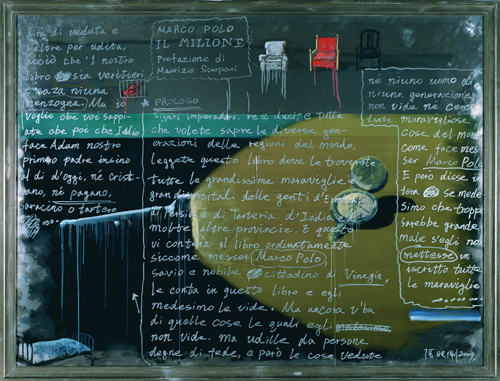 dirà di veduta e
l'altre per udita,
acciò che 'l nostro
libro sia veritieri
senza niuna
menzogna. Ma io
voglio che voi sappi-
ate che poi che Iddio
fece Adam nostro
primo padre insino
al dì d'oggi, né cristi-
ano, né pagano,
saracino o tartero
MARCO POLO
IL MILIONE
Prefazione di
Maurizio Scarpari
PROLOGO
Signori imperadori, re e duci, e tutte
che volete sapere le diverse gen-
erazioni delle regioni del mondo,
leggete questo libro dove le troverete
tutte le grandissime maraviglie e
gran diversitadi delle genti d'Erminia
di Persia e di Tarteria, d'India e
molte altre provincie. E questo
vi conterà il libro ordinatamente
siccome messer Marco Polo,
savio e nobile cittadino di Vinegia,
le conta in questo libro e egli
medesimo le vide. Ma ancora v'ha
di quelle cose le quali egli medesimo
non vide, ma udille da persone
degne di fede, e però le cose vedute
né niuno uomo di
niuna generazione
non vide né cercò
tante maravigliose
cose del mon
come fece mes-
ser Marco Polo.
E però disse in
fra se mede
simo che troppo
sarebbe grande
male s'egli no
mettesse in
iscritto tutte
le maraviglie